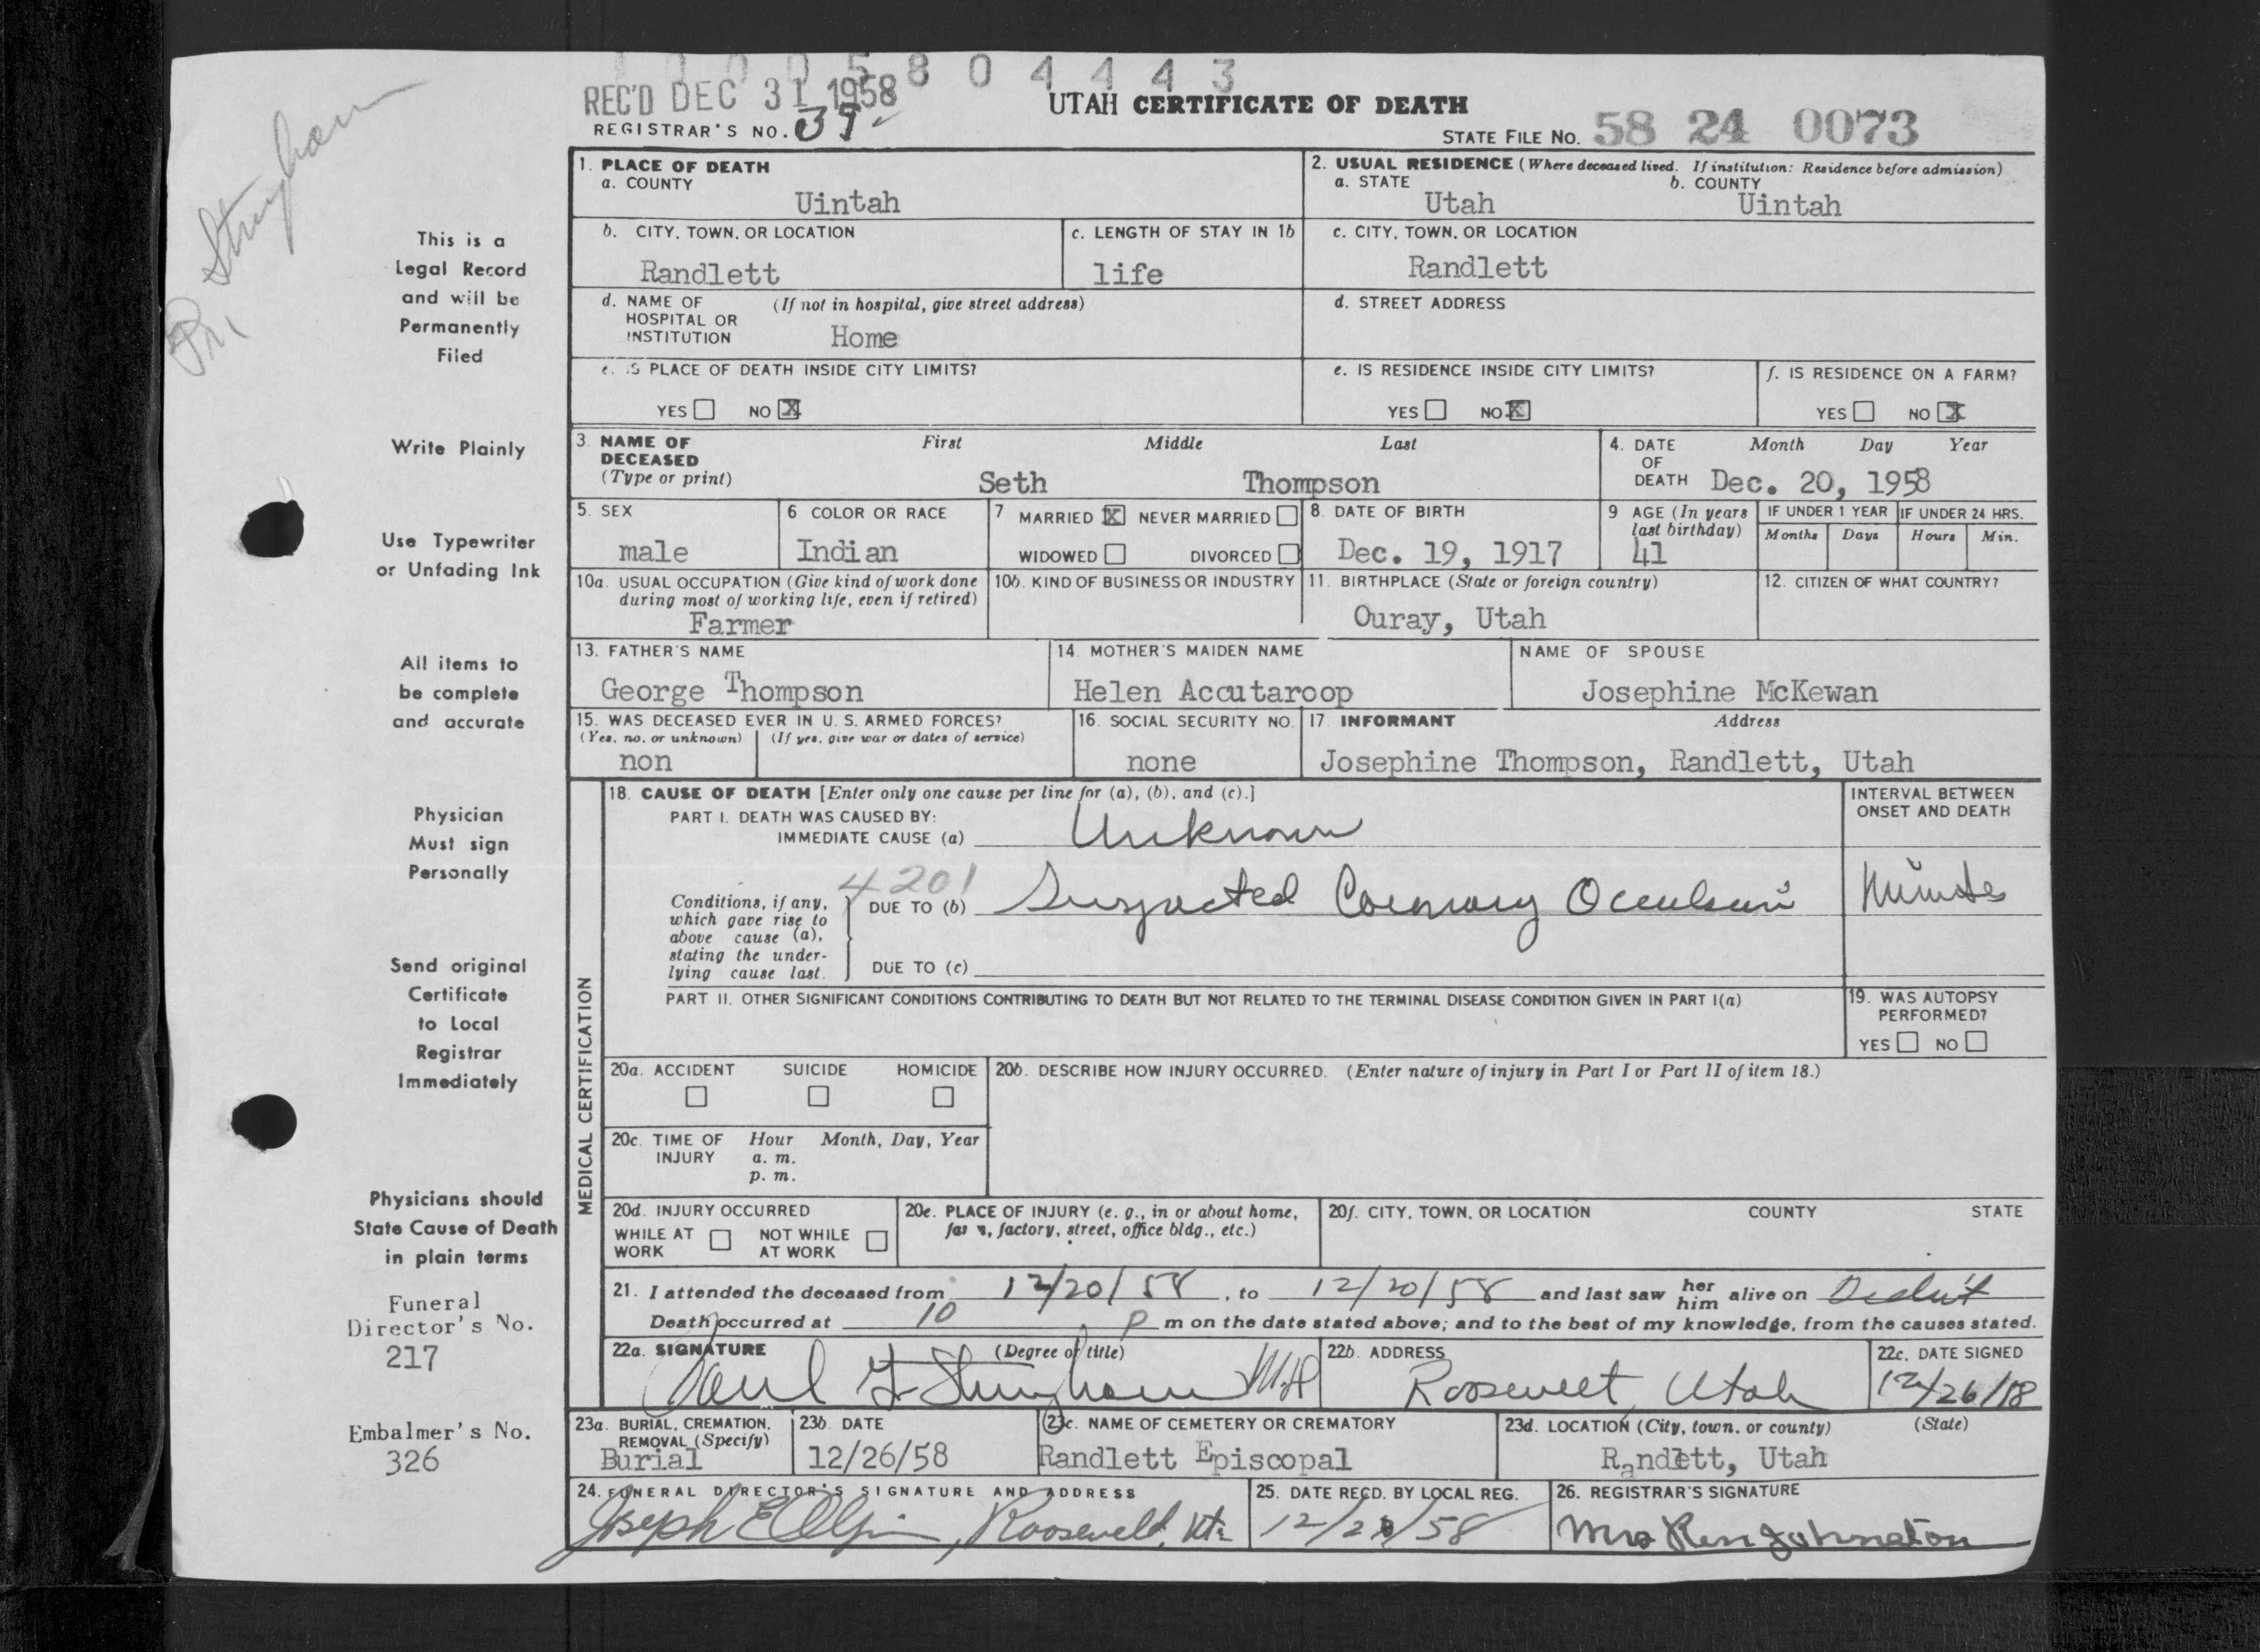 0 0 5 8 0 4 4 4 3
REC'D DEC 31 1958
UTAH CERTIFICATE OF DEATH
REGISTRAR'S NO. 39
STATE FILE NO. 58 24 0073
Stringham
This is a
Legal Record
and will be
Permanently
Filed
Write Plainly
Use Typewriter
or Unfading Ink
All items to
be complete
and accurate
Physician
Must sign
Personally
Send original
Certificate
to Local
Registrar
Immediately
Physicians should
State Cause of Death
in plain terms
Funeral
Director's No.
217
Embalmer's No.
326
1. PLACE OF DEATH
a. COUNTY
Uintah
2. USUAL RESIDENCE (Where deceased lived. If institution: Residence before admission)
a. STATE b. COUNTY
Utah Uintah
b. CITY, TOWN, OR LOCATION
Randlett
c. LENGTH OF STAY IN 1b
life
c. CITY, TOWN, OR LOCATION
Randlett
d. NAME OF (If not in hospital, give street address)
HOSPITAL OR
INSTITUTION Home
d. STREET ADDRESS
e. IS PLACE OF DEATH INSIDE CITY LIMITS?
YES NO X
e. IS RESIDENCE INSIDE CITY LIMITS?
YES NO X
f. IS RESIDENCE ON A FARM?
YES NO X
3. NAME OF First Middle Last
DECEASED
(Type or print) Seth Thompson
4. DATE Month Day Year
OF
DEATH Dec. 20, 1958
5. SEX
male
6 COLOR OR RACE
Indian
7 MARRIED X NEVER MARRIED
WIDOWED DIVORCED
8. DATE OF BIRTH
Dec. 19, 1917
9 AGE (In years
last birthday)
41
IF UNDER 1 YEAR IF UNDER 24 HRS.
Months Days Hours Min.
10a. USUAL OCCUPATION (Give kind of work done
during most of working life, even if retired)
Farmer
10b. KIND OF BUSINESS OR INDUSTRY
11. BIRTHPLACE (State or foreign country)
Ouray, Utah
12. CITIZEN OF WHAT COUNTRY?
13. FATHER'S NAME
George Thompson
14. MOTHER'S MAIDEN NAME
Helen Accutaroop
NAME OF SPOUSE
Josephine McKewan
15. WAS DECEASED EVER IN U. S. ARMED FORCES?
(Yes, no, or unknown) (If yes, give war or dates of service)
non
16. SOCIAL SECURITY NO.
none
17. INFORMANT Address
Josephine Thompson, Randlett, Utah
MEDICAL CERTIFICATION
18. CAUSE OF DEATH [Enter only one cause per line for (a), (b), and (c).]
PART I. DEATH WAS CAUSED BY:
IMMEDIATE CAUSE (a) Unknown
INTERVAL BETWEEN
ONSET AND DEATH
4201
Conditions, if any,
which gave rise to
above cause (a),
stating the under-
lying cause last.
DUE TO (b) Suspected Coronary Occulsion
Minutes
DUE TO (c)
PART II. OTHER SIGNIFICANT CONDITIONS CONTRIBUTING TO DEATH BUT NOT RELATED TO THE TERMINAL DISEASE CONDITION GIVEN IN PART I(a)
19. WAS AUTOPSY
PERFORMED?
YES NO
20a. ACCIDENT SUICIDE HOMICIDE
20b. DESCRIBE HOW INJURY OCCURRED. (Enter nature of injury in Part I or Part II of item 18.)
20c. TIME OF Hour Month, Day, Year
INJURY a. m.
p. m.
20d. INJURY OCCURRED
WHILE AT NOT WHILE
WORK AT WORK
20e. PLACE OF INJURY (e. g., in or about home,
farm, factory, street, office bldg., etc.)
20f. CITY, TOWN, OR LOCATION COUNTY STATE
21. I attended the deceased from 12/20/58, to 12/20/58 and last saw her him alive on
Death occurred at 10 P m on the date stated above; and to the best of my knowledge, from the causes stated.
22a. SIGNATURE (Degree of title)
Paul G Stringham MD
22b. ADDRESS
Roosevelt, Utah
22c. DATE SIGNED
12/26/58
23a. BURIAL, CREMATION,
REMOVAL (Specify)
Burial
23b. DATE
12/26/58
23c. NAME OF CEMETERY OR CREMATORY
Randlett Episcopal
23d. LOCATION (City, town, or county) (State)
Randlett, Utah
24. FUNERAL DIRECTOR'S SIGNATURE AND ADDRESS
Joseph E Olpin, Roosevelt, Ut.
25. DATE RECD. BY LOCAL REG.
12/26/58
26. REGISTRAR'S SIGNATURE
Mrs Ren Johnston